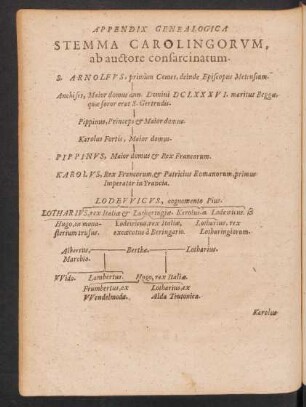 APPENDIX GENEALOGICA
STEMMA CAROLINGORVM,
ab auctore consarcinatum.
S. ARNOLFVS, primùm Comes, deinde Episcopus Metensium.
Anchises, Maior domus ann. Domini DCLXXXVI. maritus Beggæ
quæ soror erat S. Gertrudis.
Pippinus, Princeps & Maior domus.
Karolus Fortis, Maior domus.
PIPPINVS, Maior domus & Rex Francorum.
KAROLVS, Rex Francorum, & Patricius Romanorum, primus
Imperator in Francia.
LODEVVICVS, cognomento Pius.
LOTHARIVS, rex Italiæ & Lotharingiæ. Karolus. Lodovicus. &
Hugo, in mona- Ludovicus, rex Italiæ, Lotharius, rex
sterium trusus. excæcatus à Beringario. Lotharingiorum.
Albertus, Bertha. Lotharius.
Marchio.
VVido. Lambertus. Hugo, rex Italiæ.
Lotharius, ex
VVendelmoda. Alda
Karolus